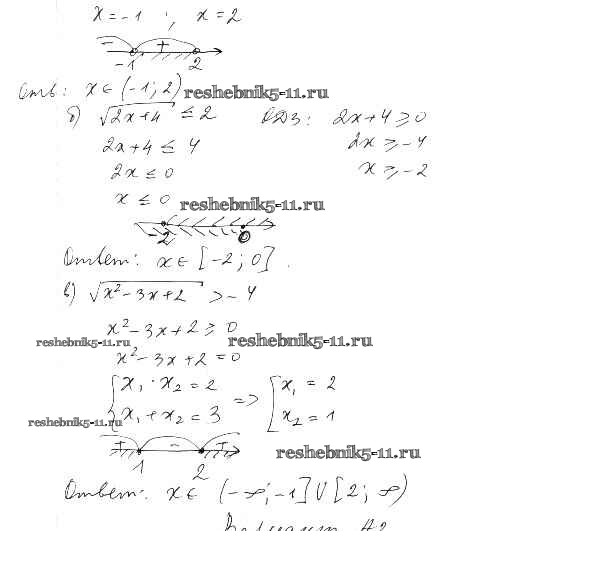 x = -1 ; x = 2
- + -1 2
Отв: x ∈ (-1; 2) reshebnik5-11.ru
б) √(2x+4) ≤ 2 ОДЗ: 2x+4 ⩾ 0
2x+4 ≤ 4 2x ⩾ -4
2x ≤ 0 x ⩾ -2
x ≤ 0 reshebnik5-11.ru
-2 0
Ответ: x ∈ [-2; 0].
в) √(x²-3x+2) > -4
x²-3x+2 ⩾ 0
reshebnik5-11.ru reshebnik5-11.ru
x²-3x+2 = 0
{ x₁ · x₂ = 2 => [ x₁ = 2
{ x₁ + x₂ = 3 [ x₂ = 1
reshebnik5-11.ru
+ - + reshebnik5-11.ru
1 2
Ответ: x ∈ (-∞; -1] ∪ [2; ∞)